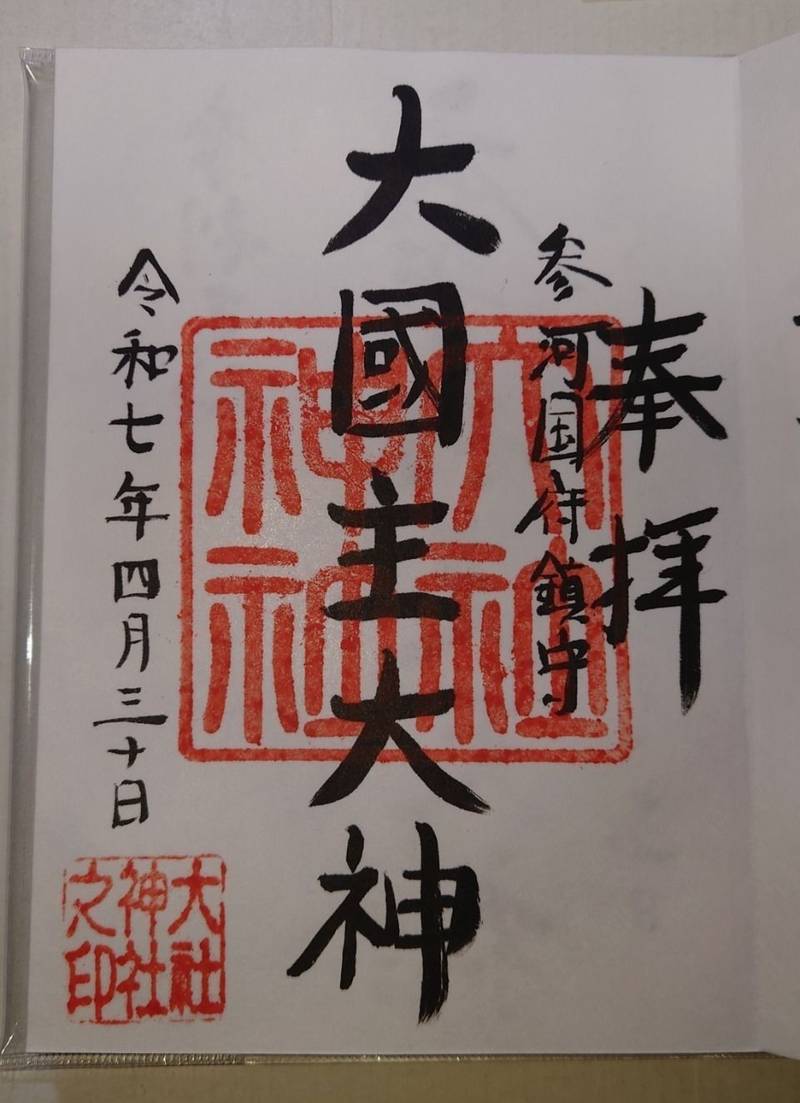 奉拝
参河国府鎮守
大國主大神
令和七年四月三十日
大社神社
大社神社之印